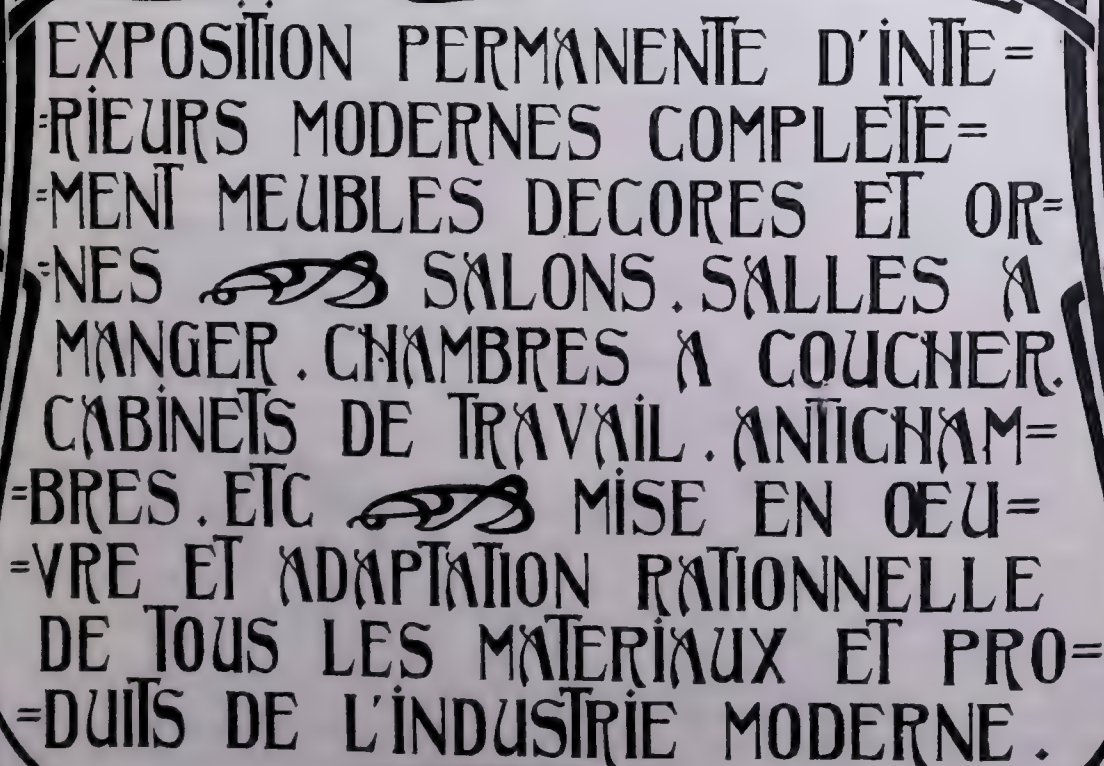 EXPOSITION PERMANENTE D'INTE=
=RIEURS MODERNES COMPLETE=
=MENT MEUBLES DECORES ET OR=
=NES SALONS. SALLES A
MANGER. CHAMBRES A COUCHER.
CABINETS DE TRAVAIL. ANTICHAM=
=BRES. ETC MISE EN ŒEU=
=VRE ET ADAPTATION RATIONNELLE
DE TOUS LES MATERIAUX ET PRO=
=DUITS DE L'INDUSTRIE MODERNE.